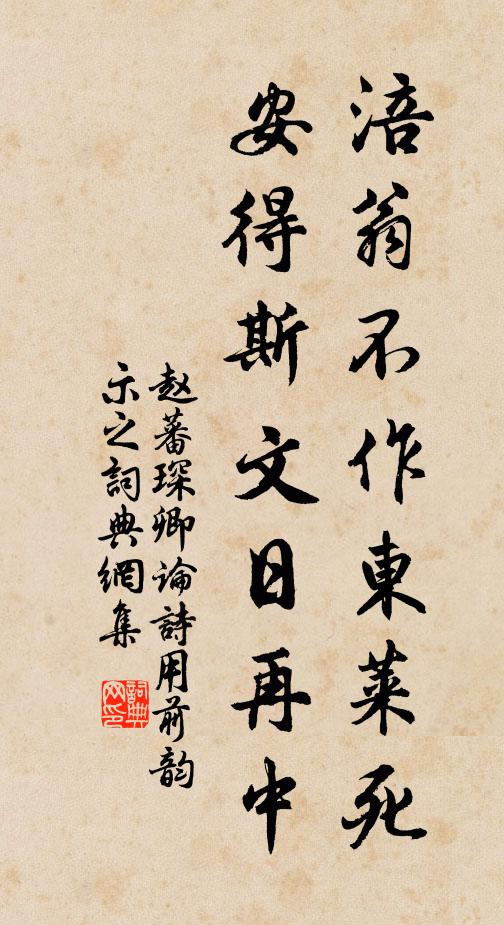 涪翁不作東萊死
安得斯文日再中
赵蕃琛卿論詩用前韵
示之詞典網集
詞典网印